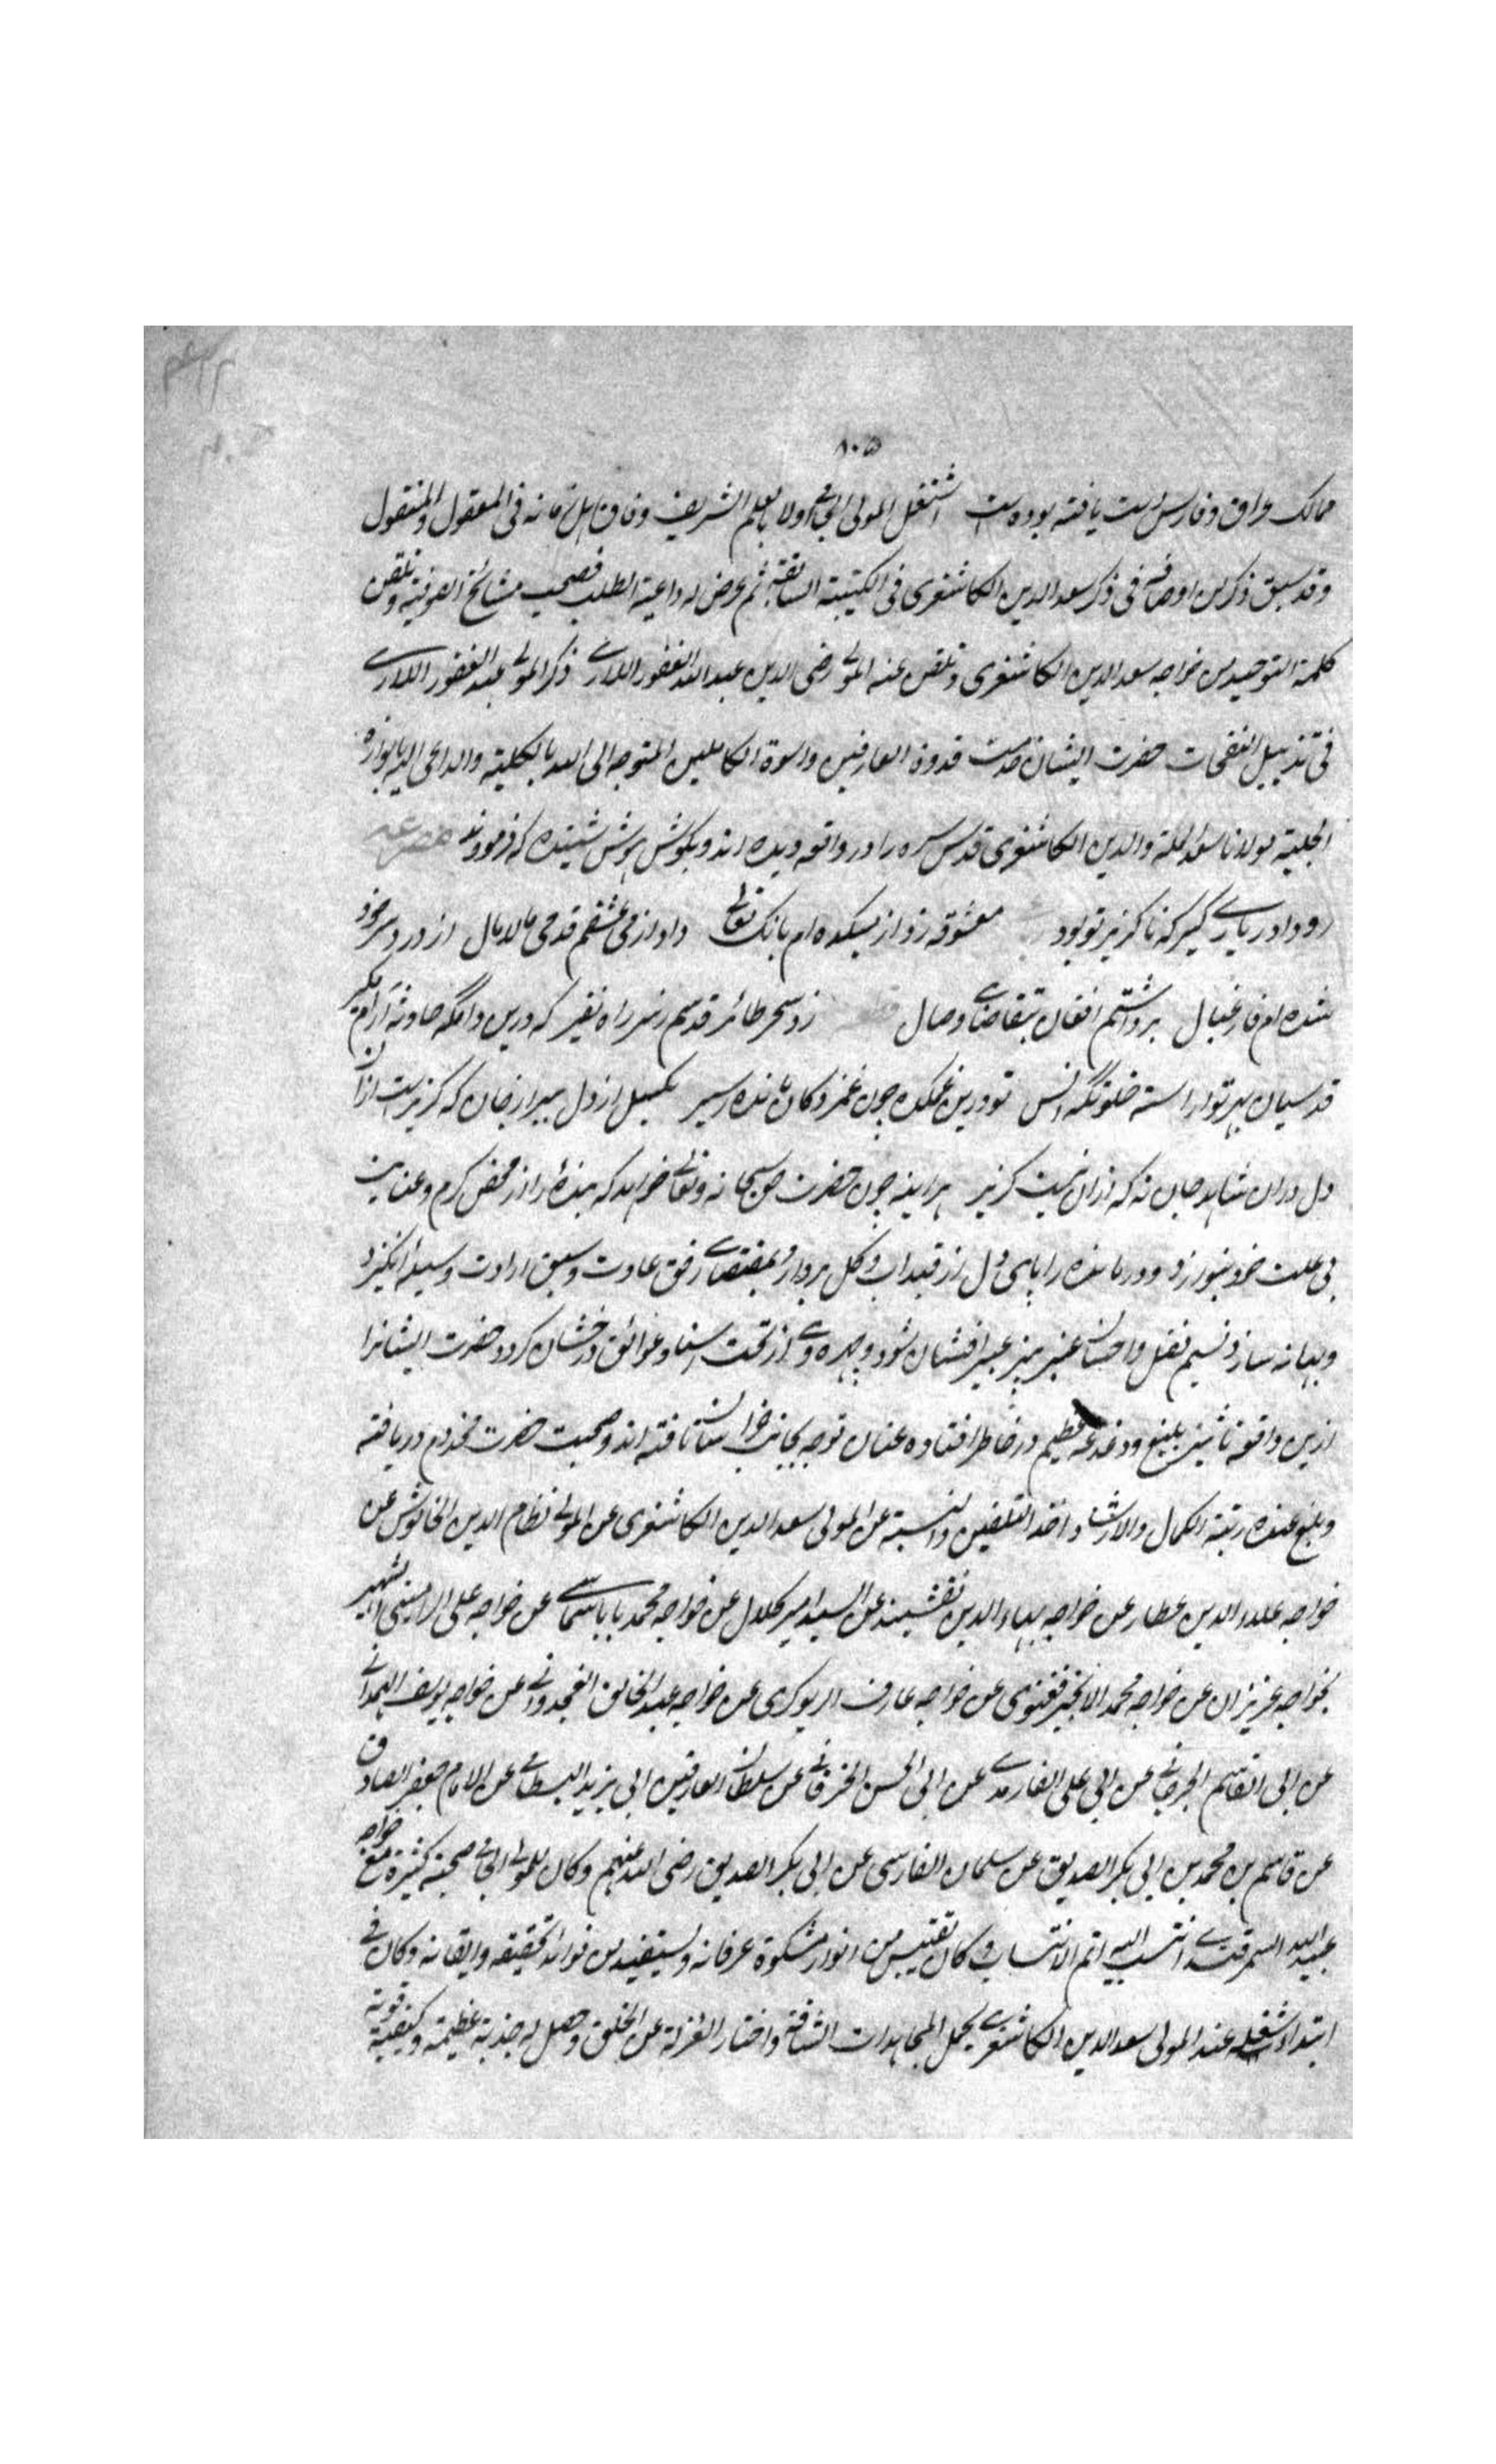 ۸۰۵
ممالک عراق و فارس است یافته بوده است اشتغل المولی الجامی اولا بالعلم الشریف وفاق اهل زمانه فی المعقول والمنقول
وقد سبق ذکر من اوصافه فی ذکر سعد الدین الکاشغری فی الکتیبة السابقة ثم عرض له داعیة الطلب فصحب مشائخ الصوفیة وتلقن
کلمة التوحید من خواجه سعد الدین الکاشغری وتلقن عنه المولی رضی الدین عبد الغفور اللاری ذکر المولی عبد الغفور اللاری
فی تذییل النفحات حضرت ایشان خدمت قدوة العارفین واسوة الکاملین المتوجه الی الله بالکلیة والداعی الیه بانواره
الجلیة مولانا سعد الملة والدین الکاشغری قدس سره را در واقعه دیده اند و بگوش هوش شنیده که فرمودند مصرعه
رو دادر یاری گیر که ناگزیر تو بود معشوقه زد از میکده ام بانگ تعالی داد از می عشقم قدحی مالامال از درد سر خرد
شده ام فارغبال برداشتم افغان بتقاضای وصال زد سحر طائر قدسم ز سر راه نفیر که درین دامگه حادثه آرام مگیر
قدسیان بهر تو آراسته خلوتگه انس تو درین غمکده چون غمزدگان مانده اسیر بکسل از دل ببر از جان که گزیرست از آن
دل در آن شاهد جان نه که از آن نیست گزیر هر آینه چون حضرت حق سبحانه و تعالی خواهد که بنده را از محض کرم و عنایت
بی علت خود بنوازد و درمانده را پای دل از قید آب و گل بردارد بمقتضای رفق عادت و سبق ارادت وسیله انگیزد
و بهانه سازد نسیم فضل و احسان عنبر بیز عبیر افشان شود و چهره وی از تحت استار عوائق درخشان گردد حضرت ایشانرا
ازین واقعه تاثیر بلیغ و دغدغه عظیم در خاطر افتاده عنان توجه بجانب خراسان تافته اند و صحبت حضرت مخدوم دریافته
وبلغ عنده رتبة الکمال والارشاد اخذ التلقین والنسبة عن المولی سعد الدین الکاشغری عن المولی نظام الدین الخاموش عن
خواجه علاء الدین عطار عن خواجه بهاء الدین نقشبند عن السید امیر کلال عن خواجه محمد بابا سماسی عن خواجه علی الرامیتنی الشهیر
بخواجه عزیزان عن خواجه محمد الانجیر فغنوی عن خواجه عارف الریوکری عن خواجه عبد الخالق الغجدوانی عن خواجه یوسف الهمدانی
عن ابی القاسم الجرجانی عن ابی علی الفارمدی عن ابی الحسن الخرقانی عن سلطان العارفین ابی یزید البسطامی عن الامام جعفر الصادق
عن قاسم بن محمد بن ابی بکر الصدیق عن سلمان الفارسی عن ابی بکر الصدیق رضی الله عنهم وکان للمولی الجامی صحبة کثیرة مع خواجه
عبید الله السمرقندی انتسب الیه اتم الانتساب وکان یقتبس من انوار مشکوة عرفانه ویستفید من فوائد تحقیقه وایقانه وکان فی
ابتداء شغله عند المولی سعد الدین الکاشغری یحمل المجاهدات الشاقة واختار العزلة عن الخلق وحصل له جذبة عظیمة وکیفیة قویة